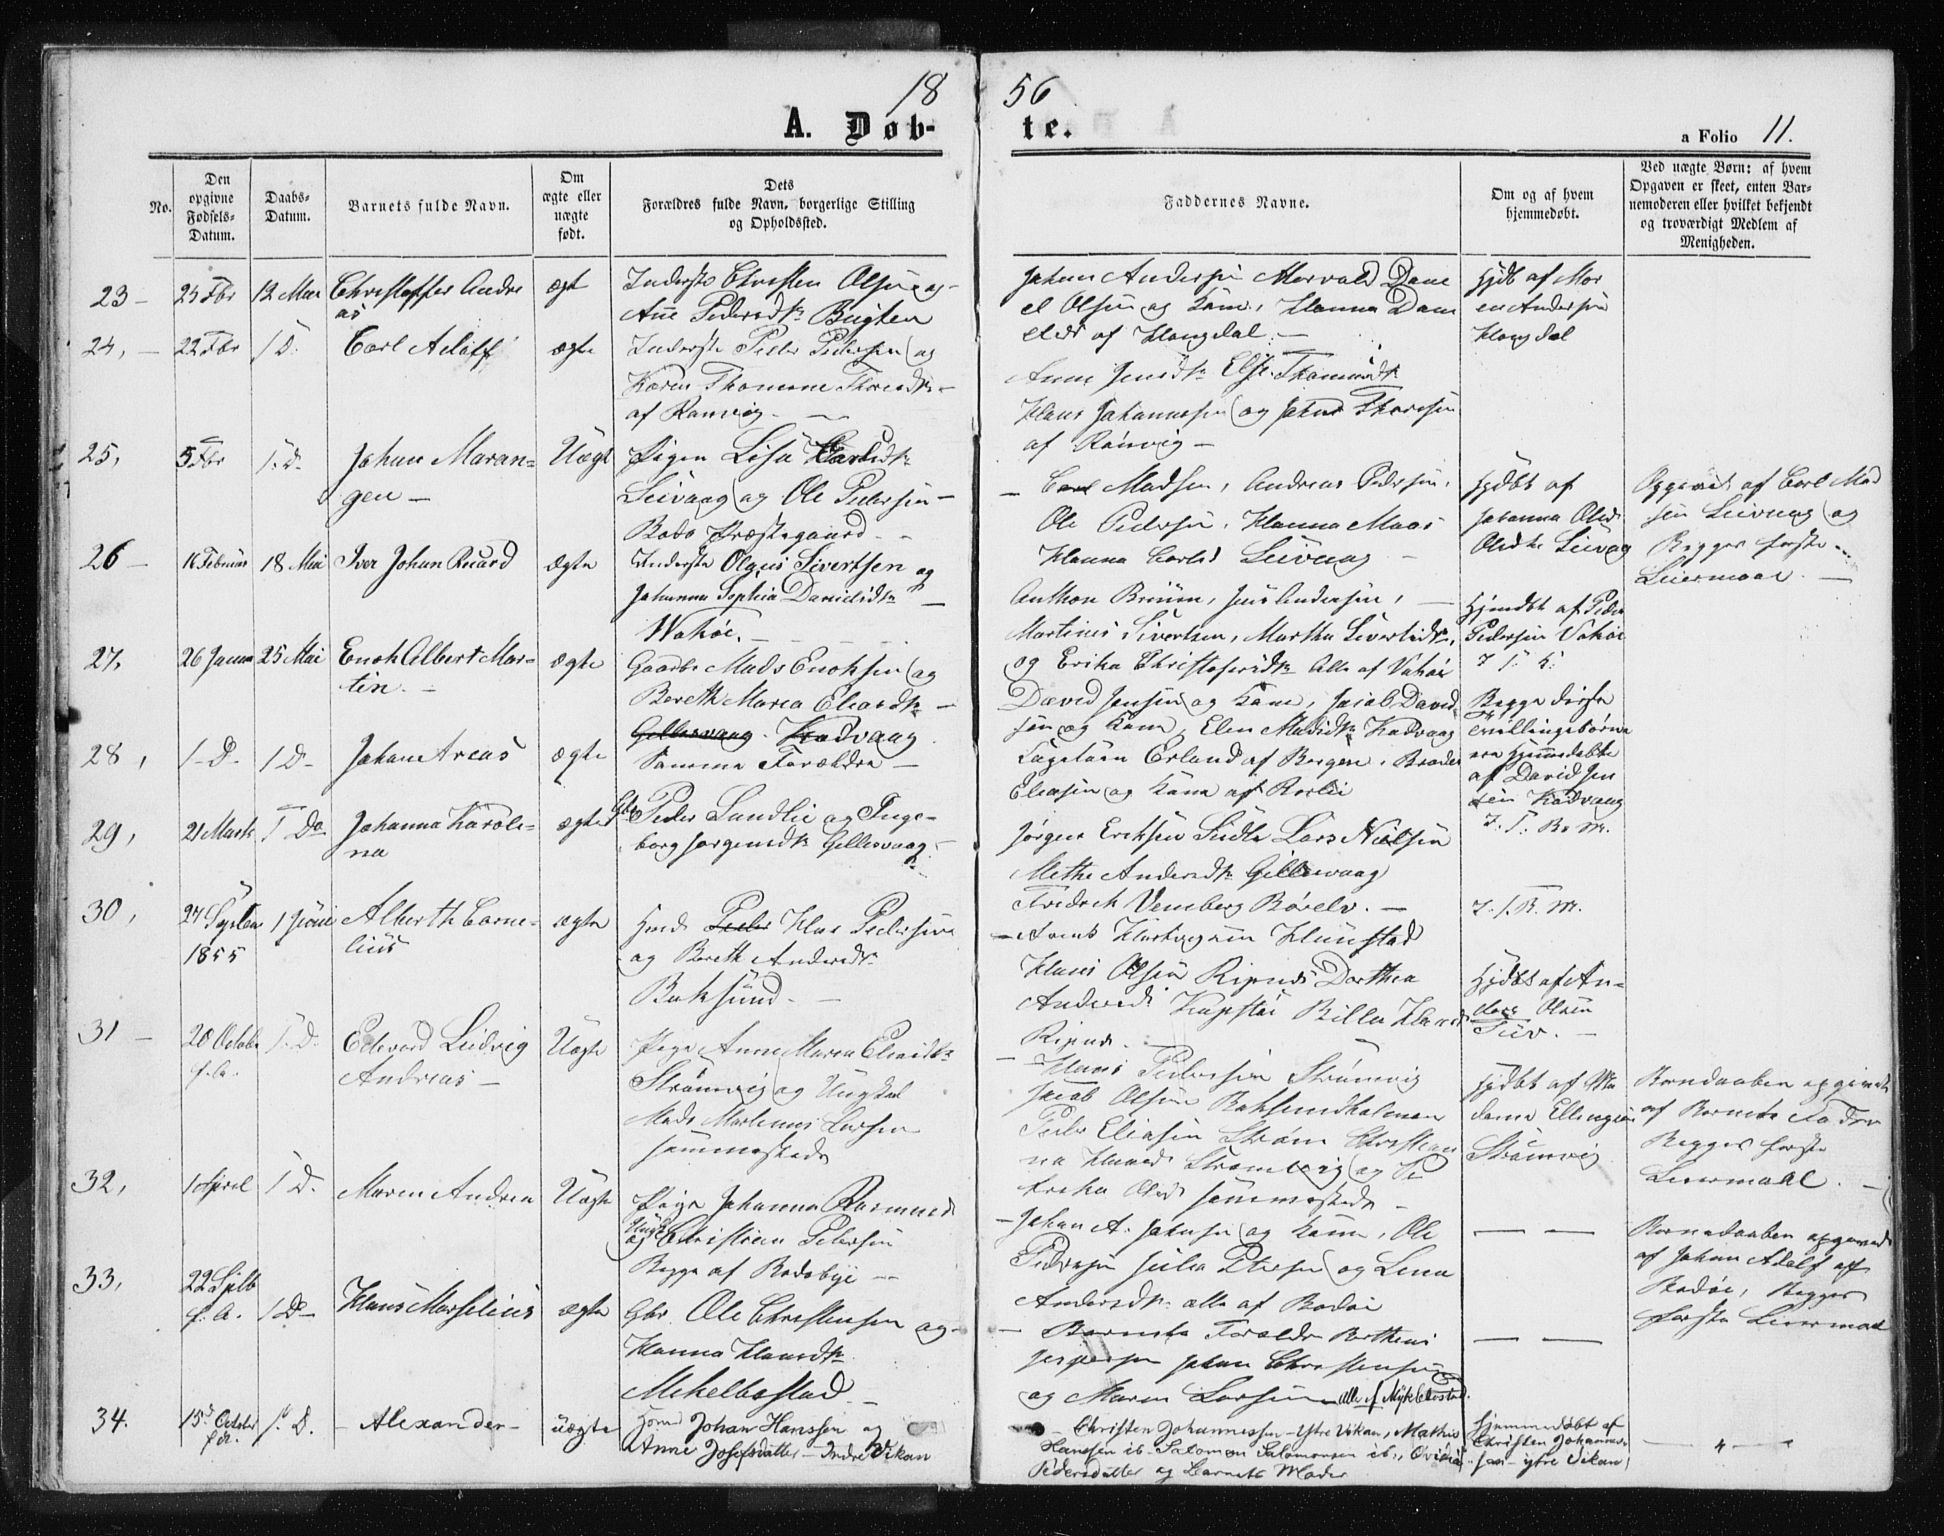 18 56
A. Døb- te.
a Folio 11.
No.
Den opgivne Fødsels-Datum.
Daabs-Datum.
Barnets fulde Navn.
Om ægte eller uægte født.
Dets Forældres fulde Navn, borgerlige Stilling og Opholdssted.
Faddernes Navne.
Om og af hvem hjemmedøbt.
Ved uægte Børn: af hvem Opgaven er skeet, enten Barnemoderen eller hvilket bekjendt og troværdigt Medlem af Menigheden.
23 - 25 Fbr 12 Mai Christoffer Andre
as
ægt
Inderste Christen Olsen og
Ane Pedersdtr Bugten
Johan Andersen Morvald Dani
el Olsen og Kone, Hanna Dani
elsd af Hongdal. -
Hjdbt af Mor
en Andersen
Hongdal
24, - 22 Fbr 1 D. Carl Adolff ægte
Inderste Peder Pedersen og
Karen Thomine Thoresdtr -
af Rønvig -
Anne Jensdtr Else Thomasdtr
Hans Johannessen og Johns Thoresen
af Rønvig -
25, 5 Fbr 1. D. Johan Maran=
gen -
Uægt
Pigen Lisa Carlsdtr
Seivaag og Ole Pedersen -
Bodø Præstegaard -
- Carl Madsen, Andreas Pedersen,
Ole Pedersen, Hanna Maas
Hanna Carlsd Seivaag -
Hjdbt af
Johanna Olids
Olsdtr Seivag
Opgivet af Carl Mad
sen Seivaag og
Begges første
Leiermaal. -
26 - 16 Februar 18 Mai Iver Johan Ruard ægte
Inderste Olaus Sivertsen og
Johanna Sophia Danielsdtr -
Wahøe. -
Anthon Bruun, Jens Andersen, -
Martinus Sivertsen, Martha Sivertsdtr,
og Erika Christofersdtr Alle af Vahøe
Hjemdbt af Peder
Pedersen Vahøe
27, 26 Janua 25 Mai Enok Albert Mar=
tin. -
ægte
Gaardbr Mads Enoksen og
Bereth Maria Eliasdtr -
Gillesvaag - Kadvaag
David Jensen og Kone, Jacob David
sen og Kone, Elen Madsdtr Kadvaag
Begge disse
Tvillingebørn
ere Hjemmedøbte
af David Jen
sen Kadvaag
28, 1 D. 1 D- Johan Areas ægte
Samme Forældre -
Elessen og Kone af Roslii
29, 21 Marts 1 Do Johanna Karoli-
na
ægte
Gbr Peder Sundlie og Inge-
borg Jørgensdtr Gillesvaag -
Jørgen Eriksen Seidle Lars Nielsen
Methe Andersdtr Gillesvaag
Fredrik Vemberg Børelv. -
30, 27 Septem
1855
1 Juni Alberth Corne-
lius
ægte
Hmd Peder Klas Pedersen
og Bereth Andersdtr
Baksund. -
Hans Olsen Ripnæs Dorthea
Andersd
Ripnæs -
Hjdbt af An-
ders Olsen
Tuv. -
31 - 20 Octobr
f. A.
1. D. Edevard Ludvig
Andreas -
Uægte
Pige Anne Maren Eliasdtr
Strømvig og Ungkal
Mads Martinus Larsen
sammesteds
- Hans Pedersen Strømvig
Jacob Olsen Baksundholmen
Peder Eliasen Strøm Christian
na Hansd Strømvig og
Olsd sammesteds -
Hjdbt af Ma
dame Ellingsen
Strømvig
Barndaaben opgivet
af Barnets Fader
Begges første
Leiermaal. -
32, 1 April 1 D. Maren Andrea Uægte
Pige Johanna Rasmusd
Ungk
og Christian Petersen
Begge af Bodøbye -
- Johan A. Johnsen og Kone, Ole
Pedersen Julia Petersen og Lena
Andersdtr alle af Bodøe
— —
Barnedaaben opgivet
af Johan Adolf af
Bodøe, Begges
første Leiermaal
33, 22 Septb
f. A.
1 D- Hans Marselius ægte
Gbr. Ole Christensen og
Hanna Hansdtr
Mikelbostad -
- Barnets Forældre Bertheus
Jespersen Johan Christensen
og Maren Larsen alle af Myklebostad.
— —
34. 15d October
f. A.
1. D. - Alexander - uægte
Hmd Johan Hanssen og
Anne Josefsdatter - Indre Vikan
- Christen Johannessen - Ytre Vikan, Mathis
Hansen ib - Salomon Salomonsen ib.,
Pedersdatter og Barnets Moder
Hjemmedøbt af
Christen Johannes-
sen - ytre Vikan
— " —